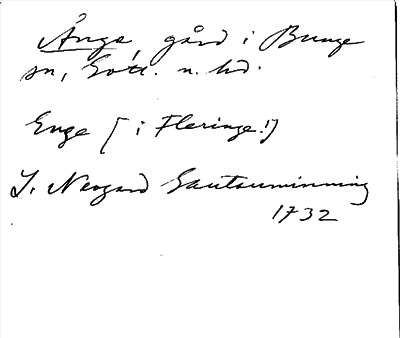 Änge, gård i Bunge
sn, Gotl. n. hd.
Enge [i Fleringe!]
J. Neogard Gautauminning
1732